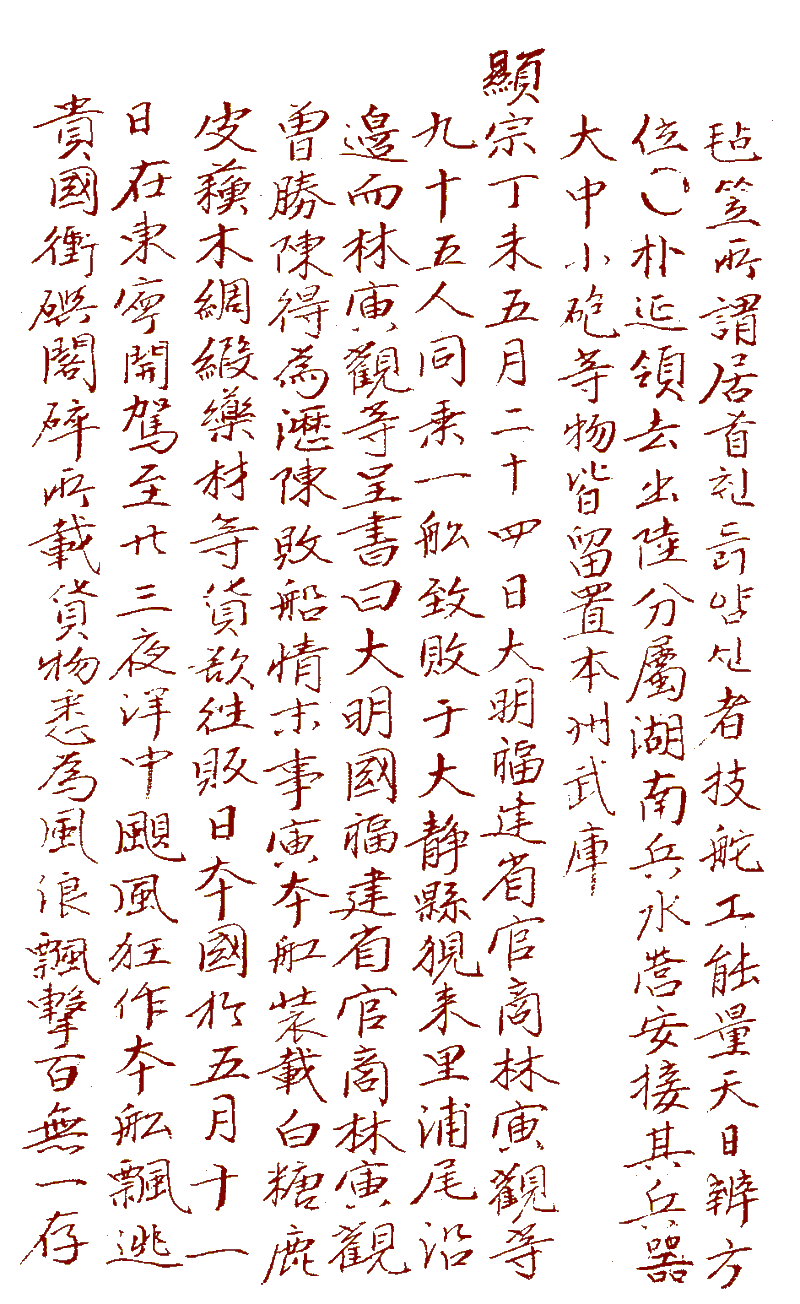 毡笠所謂居首친듥얌신者技舵工能量天日辨方
位〇朴延領去出陸分屬湖南兵水營安接其兵器
大中小砲等物皆留置本州武庫
顯宗丁未五月二十四日大明福建省官商林寅觀等
九十五人同乗一舩致敗于大靜縣猊来里浦尾沿
邉而林寅觀等呈書曰大明國福建省官商林寅觀
曾勝陳得為瀝陳敗船情朩事寅本舡装載白糖鹿
皮蘓木綢緞藥材等貨欲徃販日本國於五月十一
日在東寧開駕至廿三夜洋中颶風狂作本舩飄逃
貴國衝礖閣碎所載貨物悉為風浪飄擊百無一存